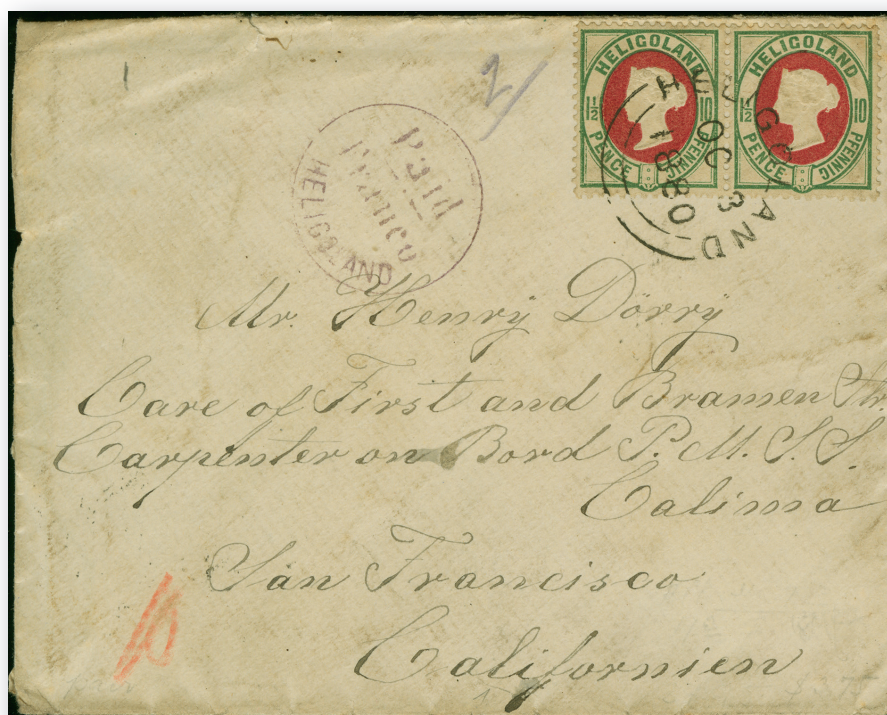 HELIGOLAND
1½ 10
PENCE PFENNIG
HELIGOLAND
1½ 10
PENCE PFENNIG
HELIGOLAND
OC 3
1880
Paid
Franco
HELIGOLAND
2/
Mr. Henry Dörry
Care of First and Bramen Str.
Carpenter on Bord P. M. S. S.
Colima
San Francisco
Californien